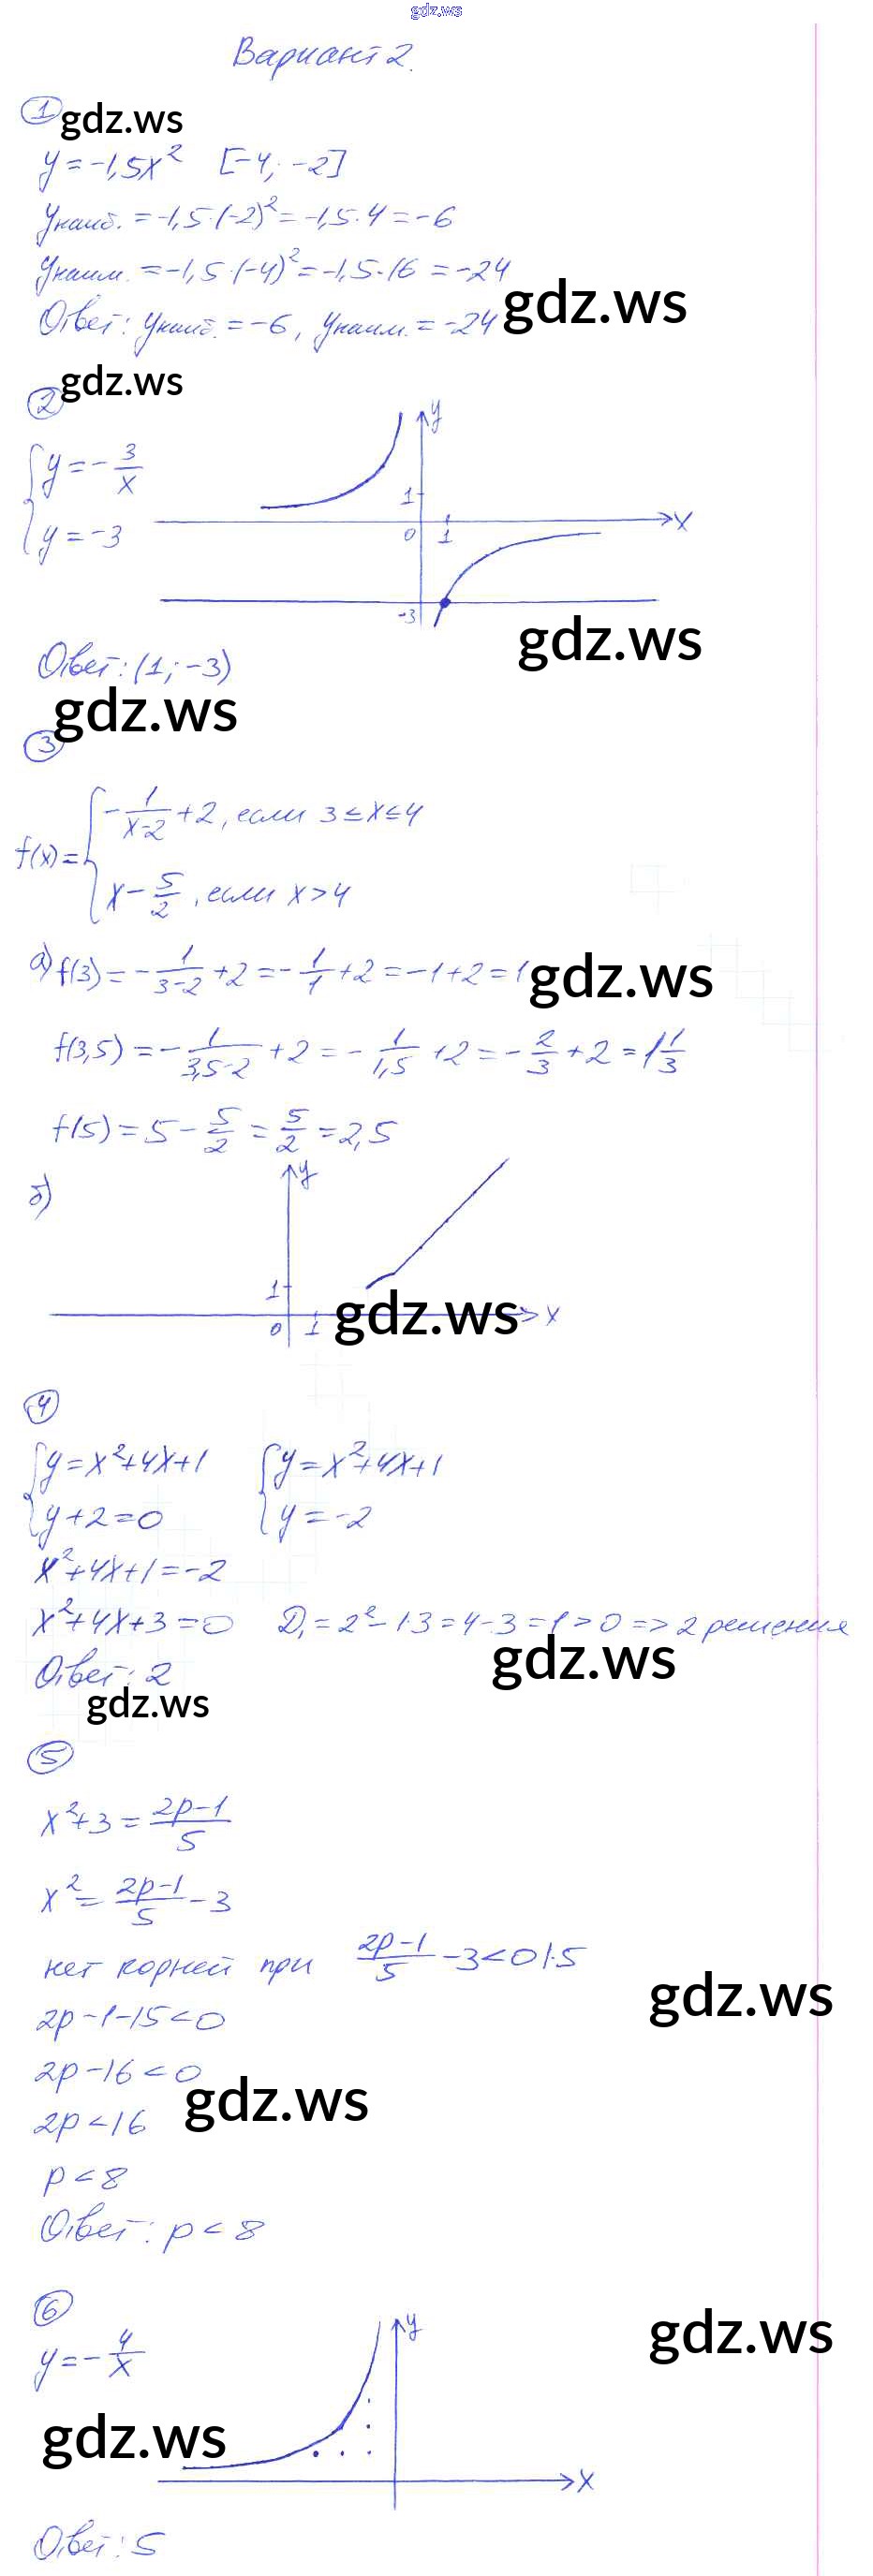 gdz.ws
Вариант 2.
1 gdz.ws
y = -1,5x² [-4; -2]
yнаиб. = -1,5·(-2)² = -1,5·4 = -6
yнаим. = -1,5·(-4)² = -1,5·16 = -24
gdz.ws
Ответ: yнаиб. = -6, yнаим. = -24
2 gdz.ws
{ y = -3/x
y = -3
y
1
0 1 x
-3
gdz.ws
Ответ: (1; -3)
gdz.ws
3
f(x) = { -1/(x-2) + 2, если 3 ≤ x ≤ 4
x - 5/2, если x > 4
а) f(3) = -1/(3-2) + 2 = -1/1 + 2 = -1 + 2 = 1
gdz.ws
f(3,5) = -1/(3,5-2) + 2 = -1/1,5 + 2 = -2/3 + 2 = 1 1/3
f(5) = 5 - 5/2 = 5/2 = 2,5
б)
y
1
0 1 x
gdz.ws
4
{ y = x²+4x+1 { y = x²+4x+1
y+2=0 y = -2
x²+4x+1 = -2
x²+4x+3 = 0 D₁ = 2² - 1·3 = 4-3 = 1 > 0 => 2 решения
gdz.ws
Ответ: 2
gdz.ws
5
x²+3 = (2p-1)/5
x² = (2p-1)/5 - 3
нет корней при (2p-1)/5 - 3 < 0 |·5
gdz.ws
2p-1-15 < 0
2p-16 < 0
gdz.ws
2p < 16
p < 8
Ответ: p < 8
6
gdz.ws
y = -4/x
y
x
gdz.ws
Ответ: 5